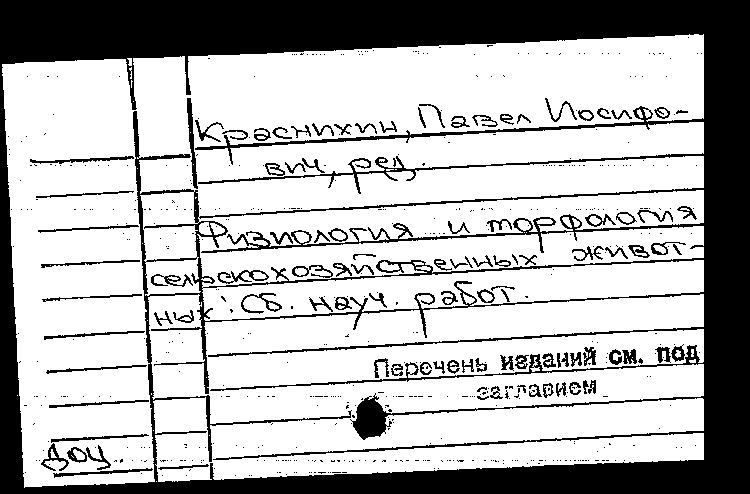 Краснихин, Павел Иосифо-
вич, ред.
Физиология и морфология
сельскохозяйственных живот-
ных: Сб. науч. работ.
Перечень изданий см. под
заглавием
доц.